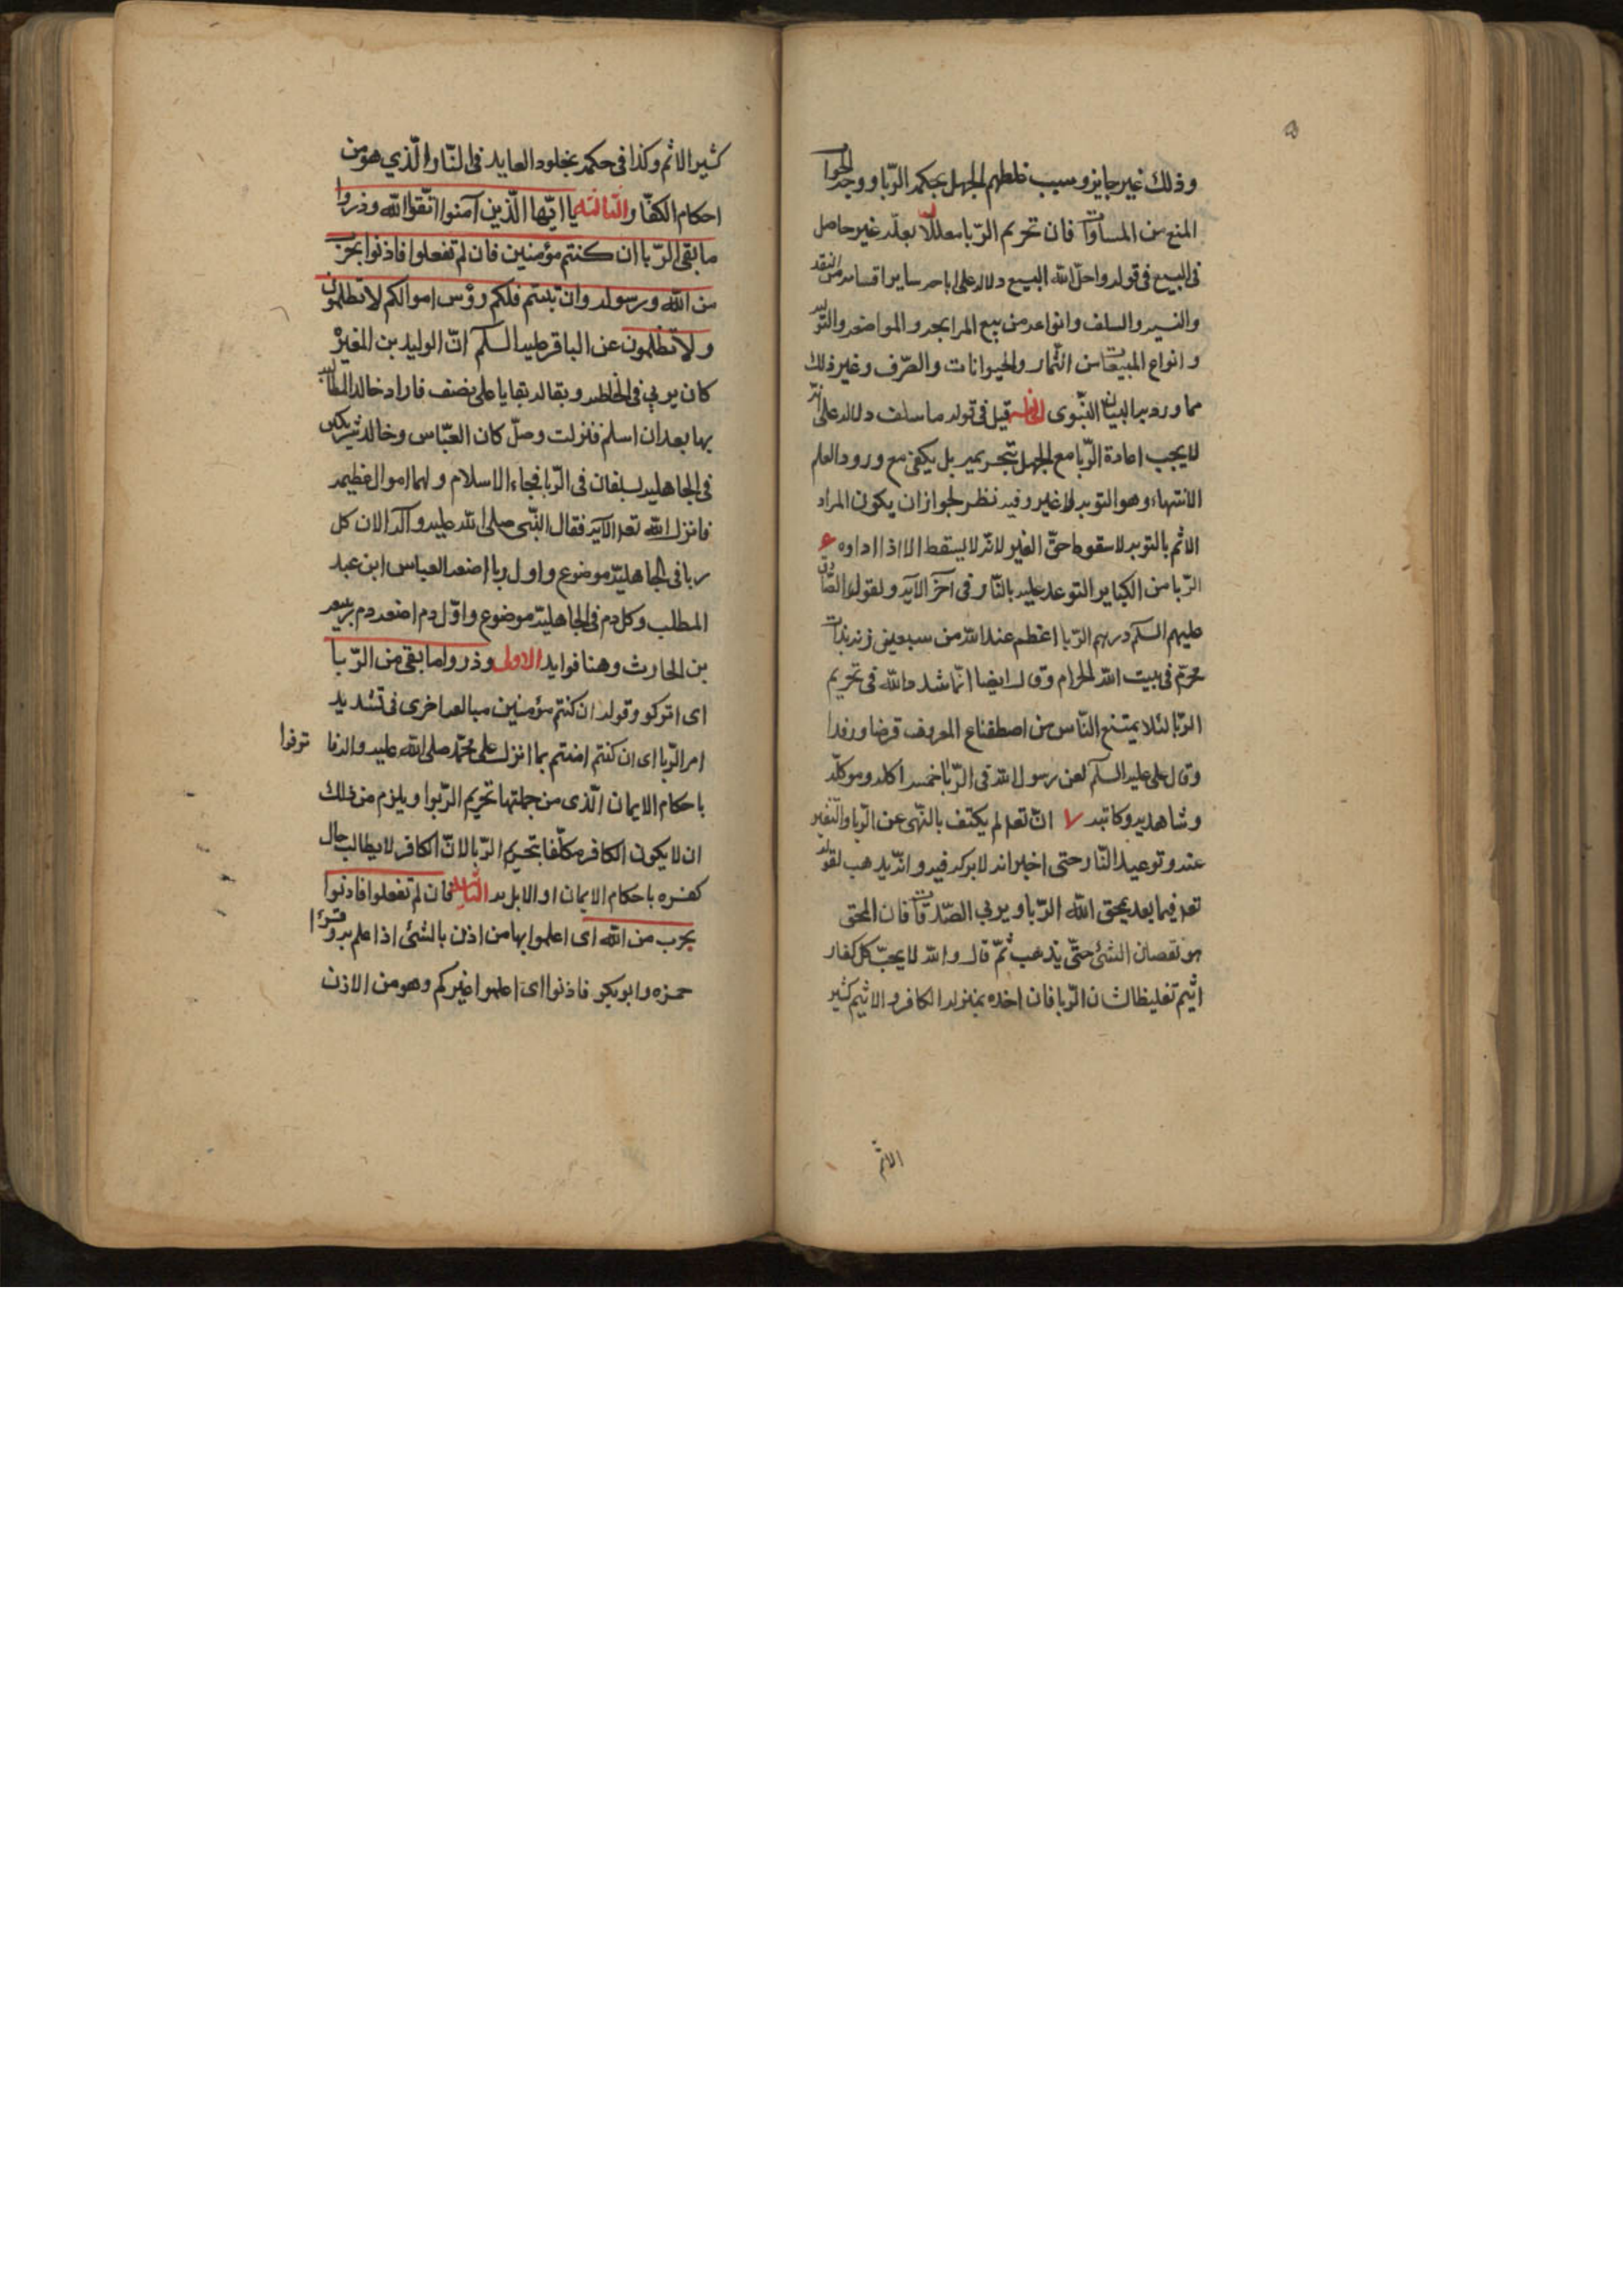 وذلك غير جايز وسبب غلطهم الجهل بحكمه الربا ووجه الجوا
المنع من المساواة فان تحريم الربا معللا بعلة غير حاصل
فى البيع فى قوله واحل الله البيع دلالة على اباحة ساير اقسامه من النقد
والنسيه والسلف وانواعه من بيع المرابحه والمواضعه والتوليه
وانواع المبيعات من الثمار والحيوانات والصرف وغير ذلك
مما ورد به البيان النبوى الخامسه قيل فى قوله ما سلف دلاله على انه
لا يجب اعادة الربا مع الجهل بتحريمه بل يكفى مع ورود العلم
الانتهاء وهو التوبه لا غير وفيه نظر لجواز ان يكون المراد
الاثم بالتوبه لا سقوط حق الغير لانه لا يسقط الا اذا اداوه ع
الربا من الكباير التوعد عليه بالنار فى آخر الآيه ولقول الصادق
عليهم السلم درهم الربا اعظم عند الله من سبعين زنيه بذات
محرم فى بيت الله الحرام وقال ايضا انما شدد الله فى تحريم
الربا لئلا يمتنع الناس من اصطناع المعروف قرضا ورفدا
وقال على عليه السلم لعن رسول الله فى الربا خمسه اكله وموكله
وشاهديه وكاتبه ٧ ان تعه لم يكتف بالنهى عن الربا والتغير
عنه وتوعيد النار حتى اخبر انه لا بركه فيه وانه يذهب لقوله
تعه فيما بعد يمحق الله الربا ويربي الصدقات فان المحق
هو نقصان الشئ حتى يذهب ثم قال والله لا يحب كل كفار
اثيم تغليظا لشان الربا فان اخده بمنزله الكافر والاثيم كثير
الاثم
كثير الاثم وكذا فى حكمه بخلود العايد فى النار الذي هو من
احكام الكفار الثالثه يا ايها الذين آمنوا اتقوا الله وذروا
ما بقى الربا ان كنتم مؤمنين فان لم تفعلوا فاذنوا بحرب
من الله ورسوله وان تبتم فلكم رؤس اموالكم لا تظلمون
ولا تظلمون عن الباقر عليه السلم ان الوليد بن المغيرة
كان يربي فى الجاهليه وبقاله بقايا على نصف فاراد خالد المطالبه
بها بعد ان اسلم فنزلت وصل كان العباس وخالد شريكين
فى الجاهليه يسلفان فى الربا فجاء الاسلام ولهما اموال عظيمه
فانزل الله تعه الآيه فقال النبى صلى الله عليه وآله الا ان كل
ربا فى الجاهلية موضوع واول ربا اضعه العباس ابن عبد
المطلب وكل دم فى الجاهلية موضوع واول دم اضعه دم ربيعه
بن الحارث وهنا فوايد الاولى وذروا ما بقى من الربا
اى اتركو وقوله ان كنتم مؤمنين مبالغه اخرى فى تشديد
امر الربا اى ان كنتم امنتم بما انزل على محمد صلى الله عليه وآله فا توفوا
باحكام الايمان الذى من جملتها تحريم الربوا ويلزم من ذلك
ان لا يكون الكافر مكلفا بتحريم الربا لان الكافر لا يطالب حال
كفره باحكام الايمان او الا بل به الثانيه فان لم تفعلوا فاذنوا
بحرب من الله اى اعلموا بها من اذن بالشئ اذا علم به وقرا
حمزه وابو بكر فاذنوا اى اعلموا غيركم وهو من الاذن